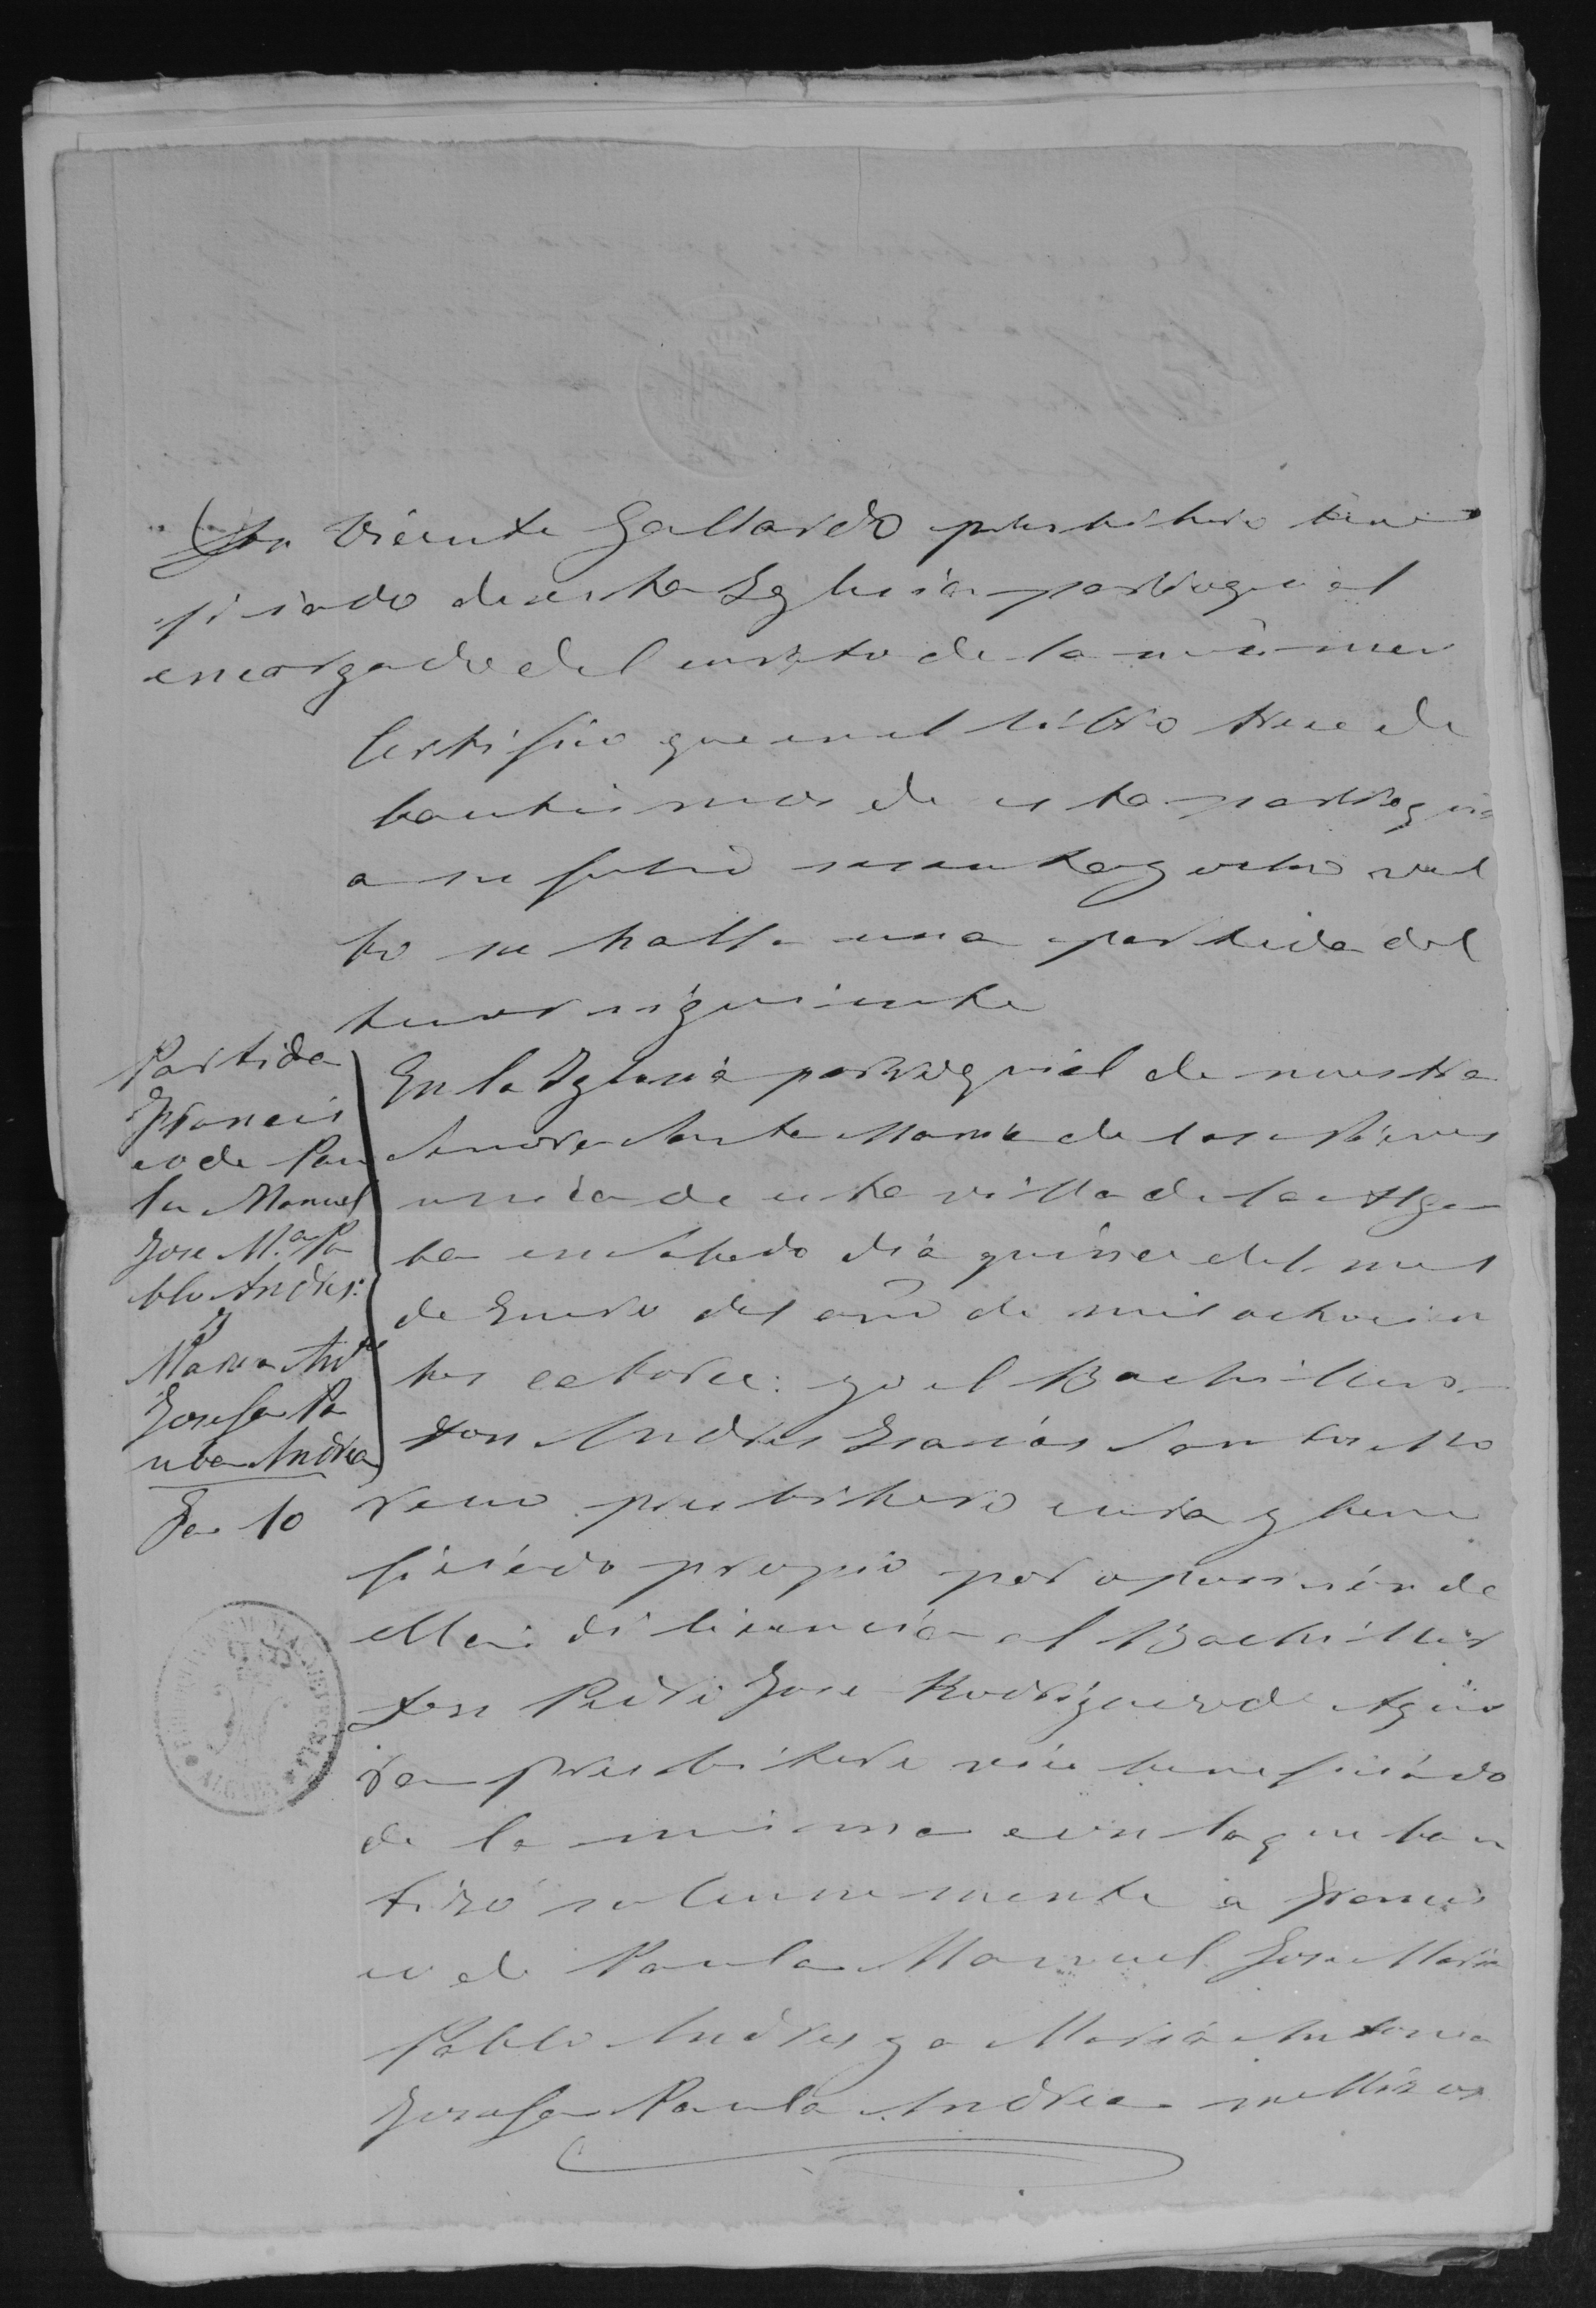 Don Vicente Gallardo presbitero bene
ficiado de esta Yglesia parroquial
encargado del curato de la misma
Certifico que en el libro trece de
bautismos de esta parroquia
a su folio sesenta y ocho vuel
to se halla una partida del
tenor siguiente
Partida
Francis
co de Pau
la Manuel
Jose M.ª Pa
blo Andres:
y
Maria Ant.ª
Josefa Pa
ula Andrea
En la Yglesia parroquial de nuestra
Señora Santa Maria de las Nieves
unica de esta villa de la Alga
ba en Sabado dia quince del mes
de Enero del año de mil ochocien
tos catorce: yo el Bachiller
don Andres Santos Mo
reno presbitero cura y bene
ficiado propio por oposicion de
ella: di licencia al Bachiller
don Pedro Jose Rodriguez de Aguie
ra presbitero vice beneficiado
de la misma con la que bau
tizó solemnemente a Francis
co de Paula Manuel Jose Maria
Pablo Andres y a Maria Antonia
Josefa Paula Andrea mellizos